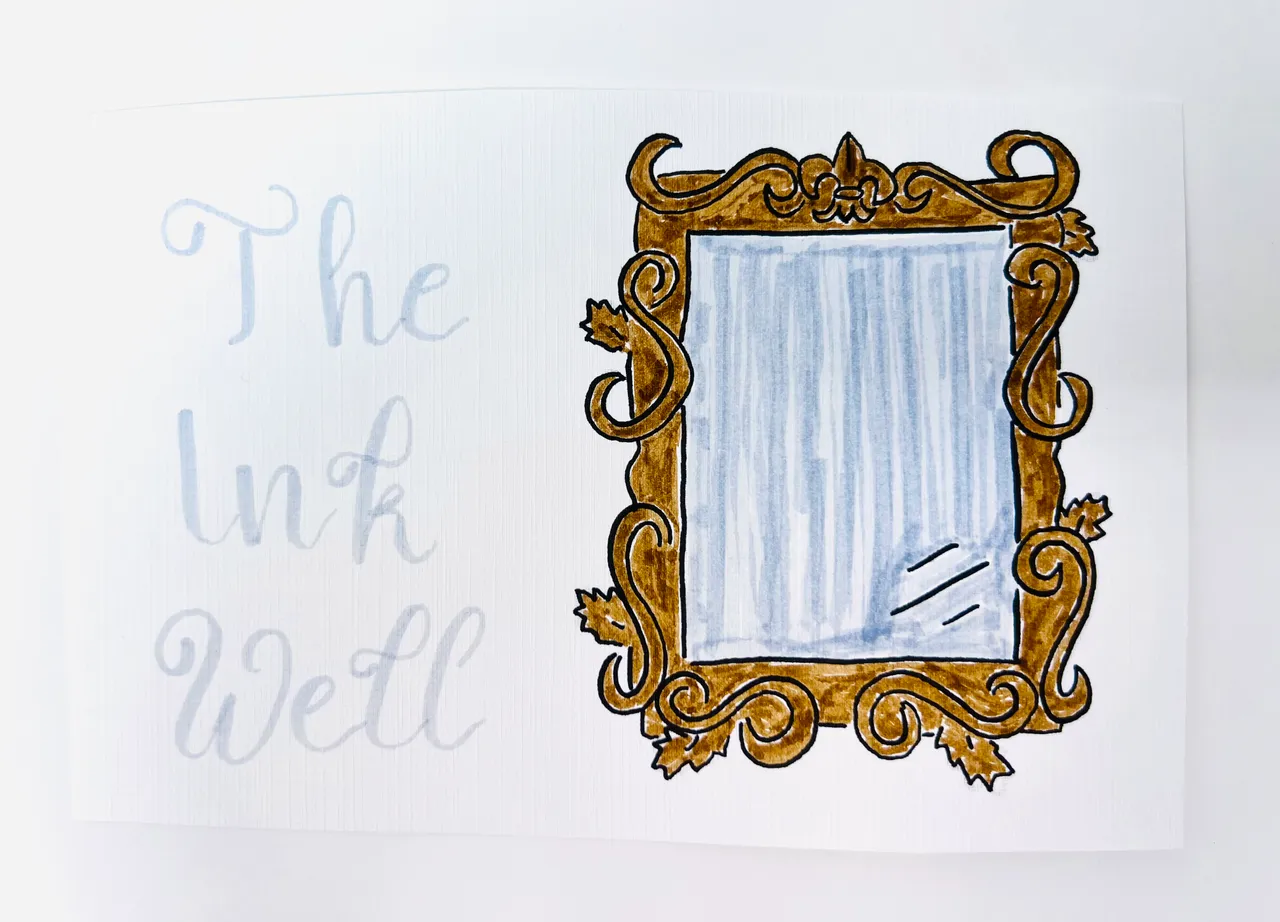 The
Ink
Well